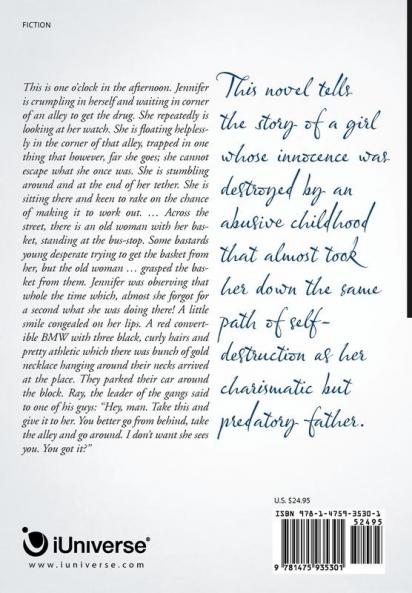 FICTION
This is one o'clock in the afternoon. Jennifer
is crumpling in herself and waiting in corner
of an alley to get the drug. She repeatedly is
looking at her watch. She is floating helpless-
ly in the corner of that alley, trapped in one
thing that however, far she goes; she cannot
escape what she once was. She is stumbling
around and at the end of her tether. She is
sitting there and keen to rake on the chance
of making it to work out. … Across the
street, there is an old woman with her bas-
ket, standing at the bus-stop. Some bastards
young desperate trying to get the basket from
her, but the old woman … grasped the bas-
ket from them. Jennifer was observing that
whole the time which, almost she forgot for
a second what she was doing there! A little
smile congealed on her lips. A red convert-
ible BMW with three black, curly hairs and
pretty athletic which there was bunch of gold
necklace hanging around their necks arrived
at the place. They parked their car around
the block. Ray, the leader of the gangs said
to one of his guys: "Hey, man. Take this and
give it to her. You better go from behind, take
the alley and go around. I don't want she sees
you. You got it?"
This novel tells
the story of a girl
whose innocence was
destroyed by an
abusive childhood
that almost took
her down the same
path of self-
destruction as her
charismatic but
predatory father.
U.S. $24.95
ISBN 978-1-4759-3530-1
52495
9 781475 935301
iUniverse®
www.iuniverse.com